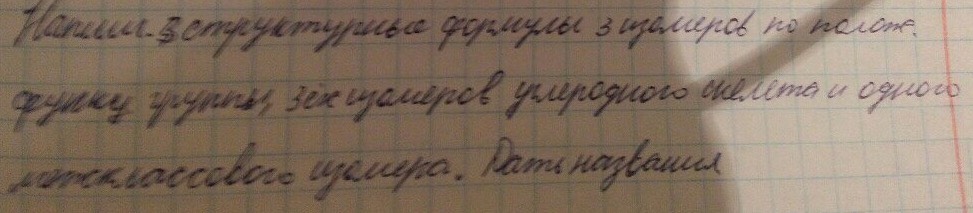 Напиш. структурные формулы 3 изомеров по полож.
функц группы, 3ёх изомеров углеродного скелета и одного
межклассового изомера. Дать названия